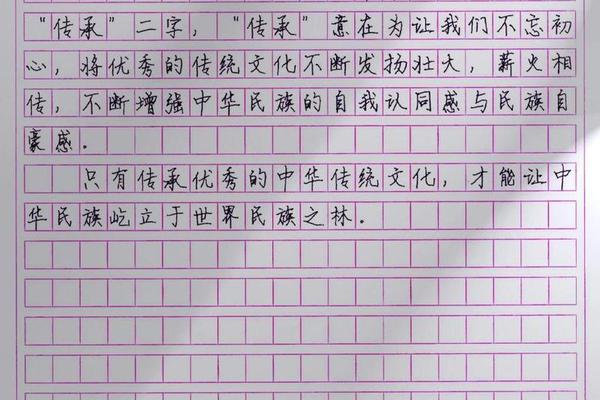 “传承”二字，“传承”意在为让我们不忘初
心，将优秀的传统文化不断发扬壮大，薪火相
传，不断增强中华民族的自我认同感与民族自
豪感．
只有传承优秀的中华传统文化，才能让中
华民族屹立于世界民族之林．